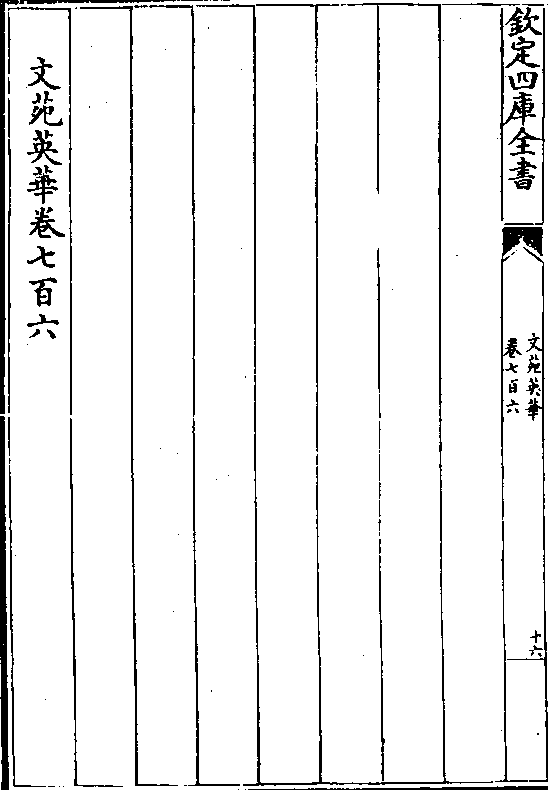 欽定四庫全書
文苑英華
卷七百六
十六
文苑英華卷七百六